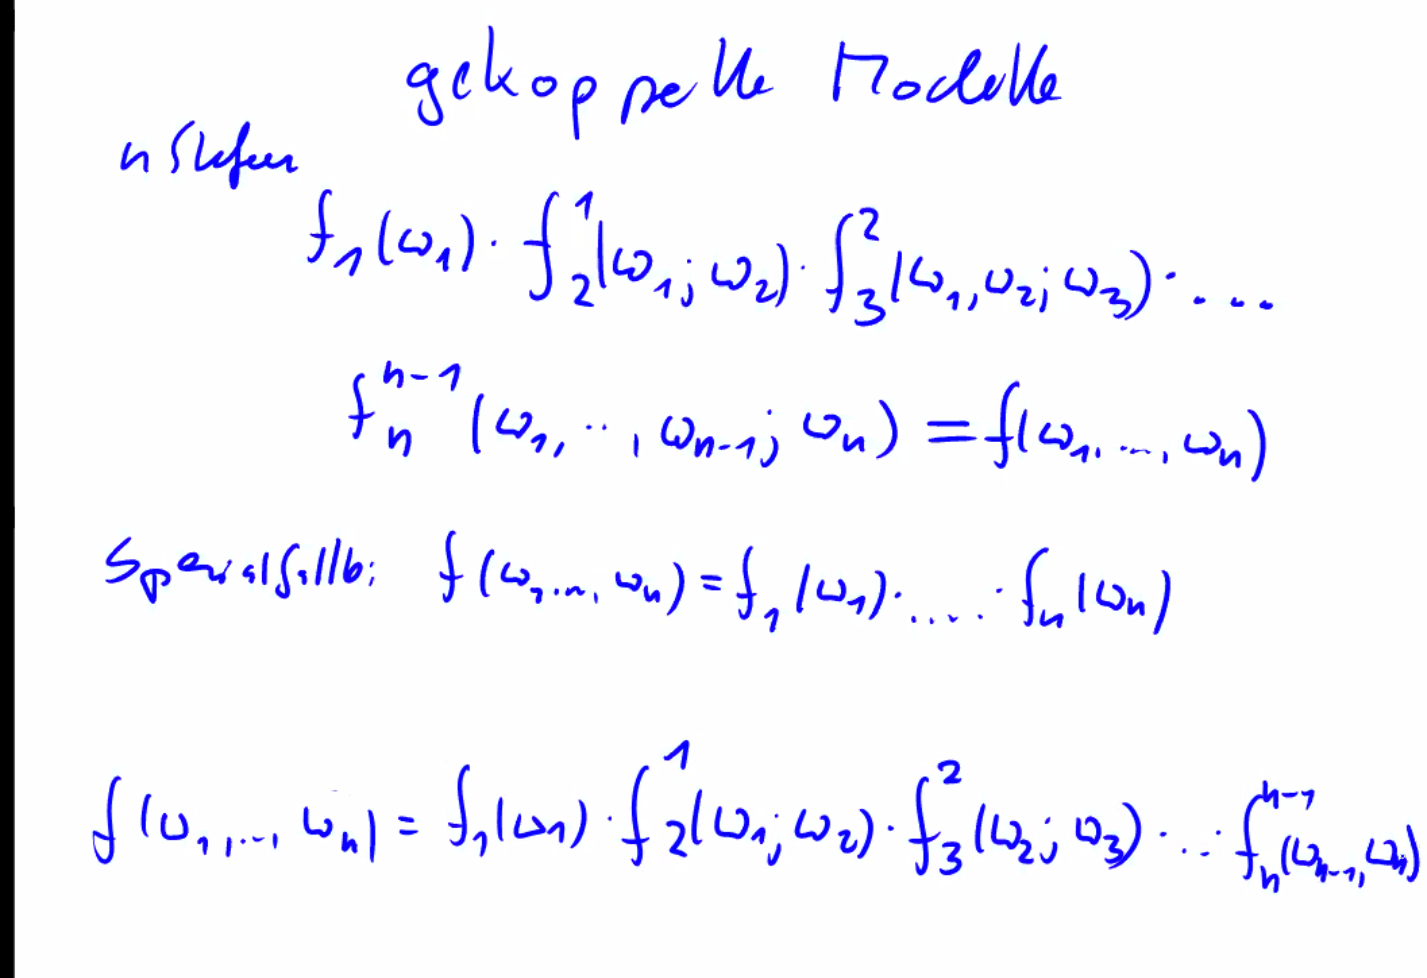 gekoppelte Modelle
n Stufen
f₁(ω₁) · f₂¹(ω₁; ω₂) · f₃²(ω₁, ω₂; ω₃) · ...
fₙⁿ⁻¹(ω₁, .., ωₙ₋₁; ωₙ) = f(ω₁, ..., ωₙ)
Spezialfälle: f(ω₁, ..., ωₙ) = f₁(ω₁) · .... · fₙ(ωₙ)
f(ω₁, ..., ωₙ) = f₁(ω₁) · f₂¹(ω₁; ω₂) · f₃²(ω₂; ω₃) · ... · fₙⁿ⁻¹(ωₙ₋₁, ωₙ)